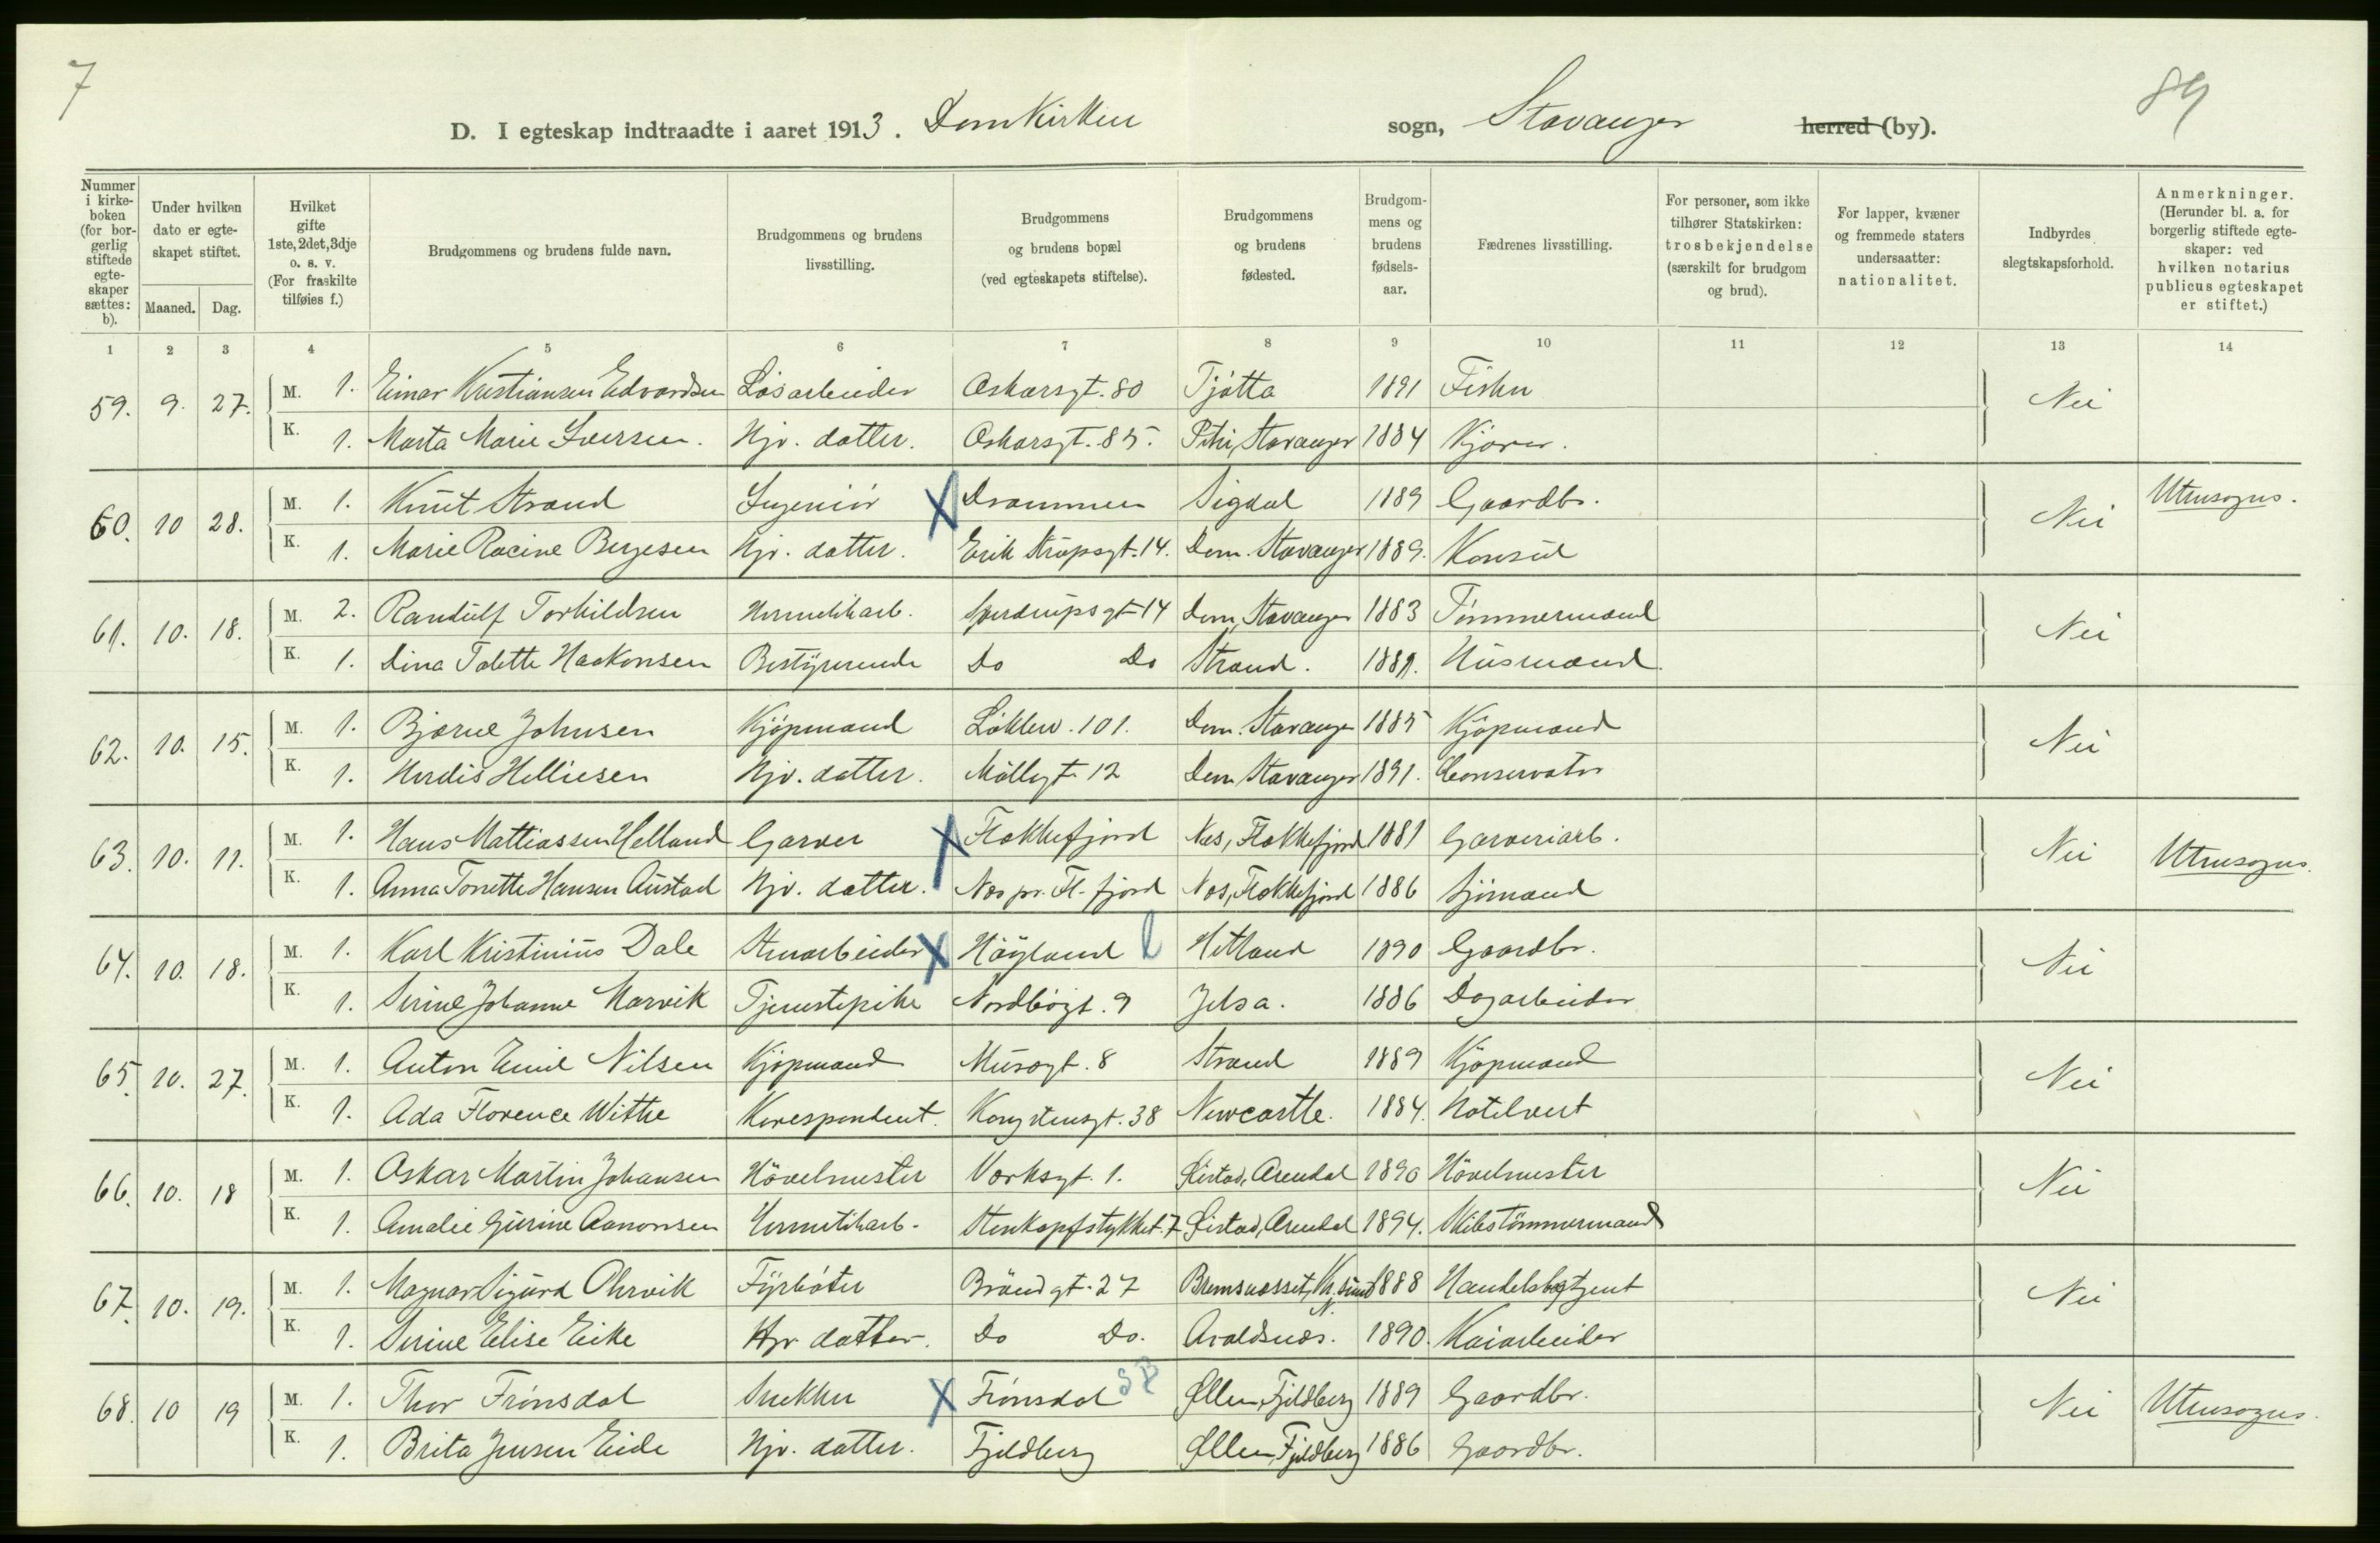 7
89
D. I egteskap indtraadte i aaret 1913. Domkirken sogn, Stavanger herred (by).
Nummer i kirkeboken (for borgerlig stiftede egteskaper sættes: b).
Under hvilken dato er egteskapet stiftet.
Maaned. Dag.
Hvilket gifte 1ste, 2det, 3dje o. s. v. (For fraskilte tilføies f.)
Brudgommens og brudens fulde navn.
Brudgommens og brudens livsstilling.
Brudgommens og brudens bopæl (ved egteskapets stiftelse).
Brudgommens og brudens fødested.
Brudgommens og brudens fødselsaar.
Fædrenes livsstilling.
For personer, som ikke tilhører Statskirken: trosbekjendelse (særskilt for brudgom og brud).
For lapper, kvæner og fremmede staters undersaatter: nationalitet.
Indbyrdes slegtskapsforhold.
Anmerkninger. (Herunder bl. a. for borgerlig stiftede egteskaper: ved hvilken notarius publicus egteskapet er stiftet.)
1 2 3 4 5 6 7 8 9 10 11 12 13 14
59. 9. 27. M. 1. Einar Kristiansen Edvardsen Løsarbeider Oskarsgt. 80 Tjøtta 1891 Fisker Nei
K. 1. Marta Marie Iversen. Hjv. datter. Oskarsgt. 85. Petri, Stavanger 1884 Kjører.
60. 10 28. M. 1. Knut Strand Ingeniør X Drammen Sigdal 1889 Gaardbr. Nei Utensogns.
K. 1. Marie Racine Bergesen Hjv. datter. Erik Krupsgt. 14. Dom. Stavanger 1889. Konsul
61. 10. 18. M. 2. Randulf Torkildsen Hermetikarb. Sverdrupsgt 14 Dom, Stavanger 1883 Tømmermand Nei
K. 1. Dina Tolette Haakonsen Bestyrerinde Do Do Strand. 1881. Husmand.
62. 10. 15. M. 1. Bjarne Johnsen Kjøpmand Løkkev. 101. Dom. Stavanger 1885 Kjøpmand Nei
K. 1. Herdis Helliesen Hjv. datter. Møllegt 12 Dom Stavanger 1891. Conservator
63. 10. 11. M. 1. Hans Mattiassen Helland Garver X Flekkefjord Nes, Flekkefjord 1881 Garveriarb. Nei Utensogns.
K. 1. Anna Tonette Hansen Austad Hjv. datter. Nes pr. Fl. fjord Nes, Flekkefjord 1886 Sjømand
64. 10. 18. M. 1. Karl Kristinius Dale Stenarbeider X Høyland Hetland 1890 Gaardbr. Nei
K. 1. Serine Johanne Marvik Tjenestepike Nordbøgt. 9 Jelsa. 1886 Dagarbeider
65. 10. 27. M. 1. Anton Emil Nilsen Kjøpmand Musegt. 8 Strand 1889 Kjøpmand Nei
K. 1. Ada Florence Withe Korespondent. Kongstensgt. 38 Newcastle. 1884. Hotelvert
66. 10. 18 M. 1. Oskar Martin Johansen Høvelmester Verksgt. 1. Øiestad, Arendal 1890 Høvelmester Nei
K. 1. Amalie Gurine Aanonsen Hermetikarb. Stenkopfstykket. 7 Øiestad, Arendal 1894. Skibstømmermand
67. 10. 19. M. 1. Magnar Sigurd Ohrvik Fyrbøter Brandgt. 27 Bremsnesset, Kr.sund N. 1888 Handelsagent Nei
K. 1. Serine Elise Eike Hjv datter. Do Do. Avaldsnes. 1890. Kaiarbeider
68. 10 19 M. 1. Thor Frønsdal Snekker X Frønsdal Ølen, Fjeldberg 1889 Gaardbr. Nei Utensogns.
K. 1. Brita Jensen Eide Hjv. datter. Fjeldberg Ølen, Fjeldberg 1886 Gaardbr.